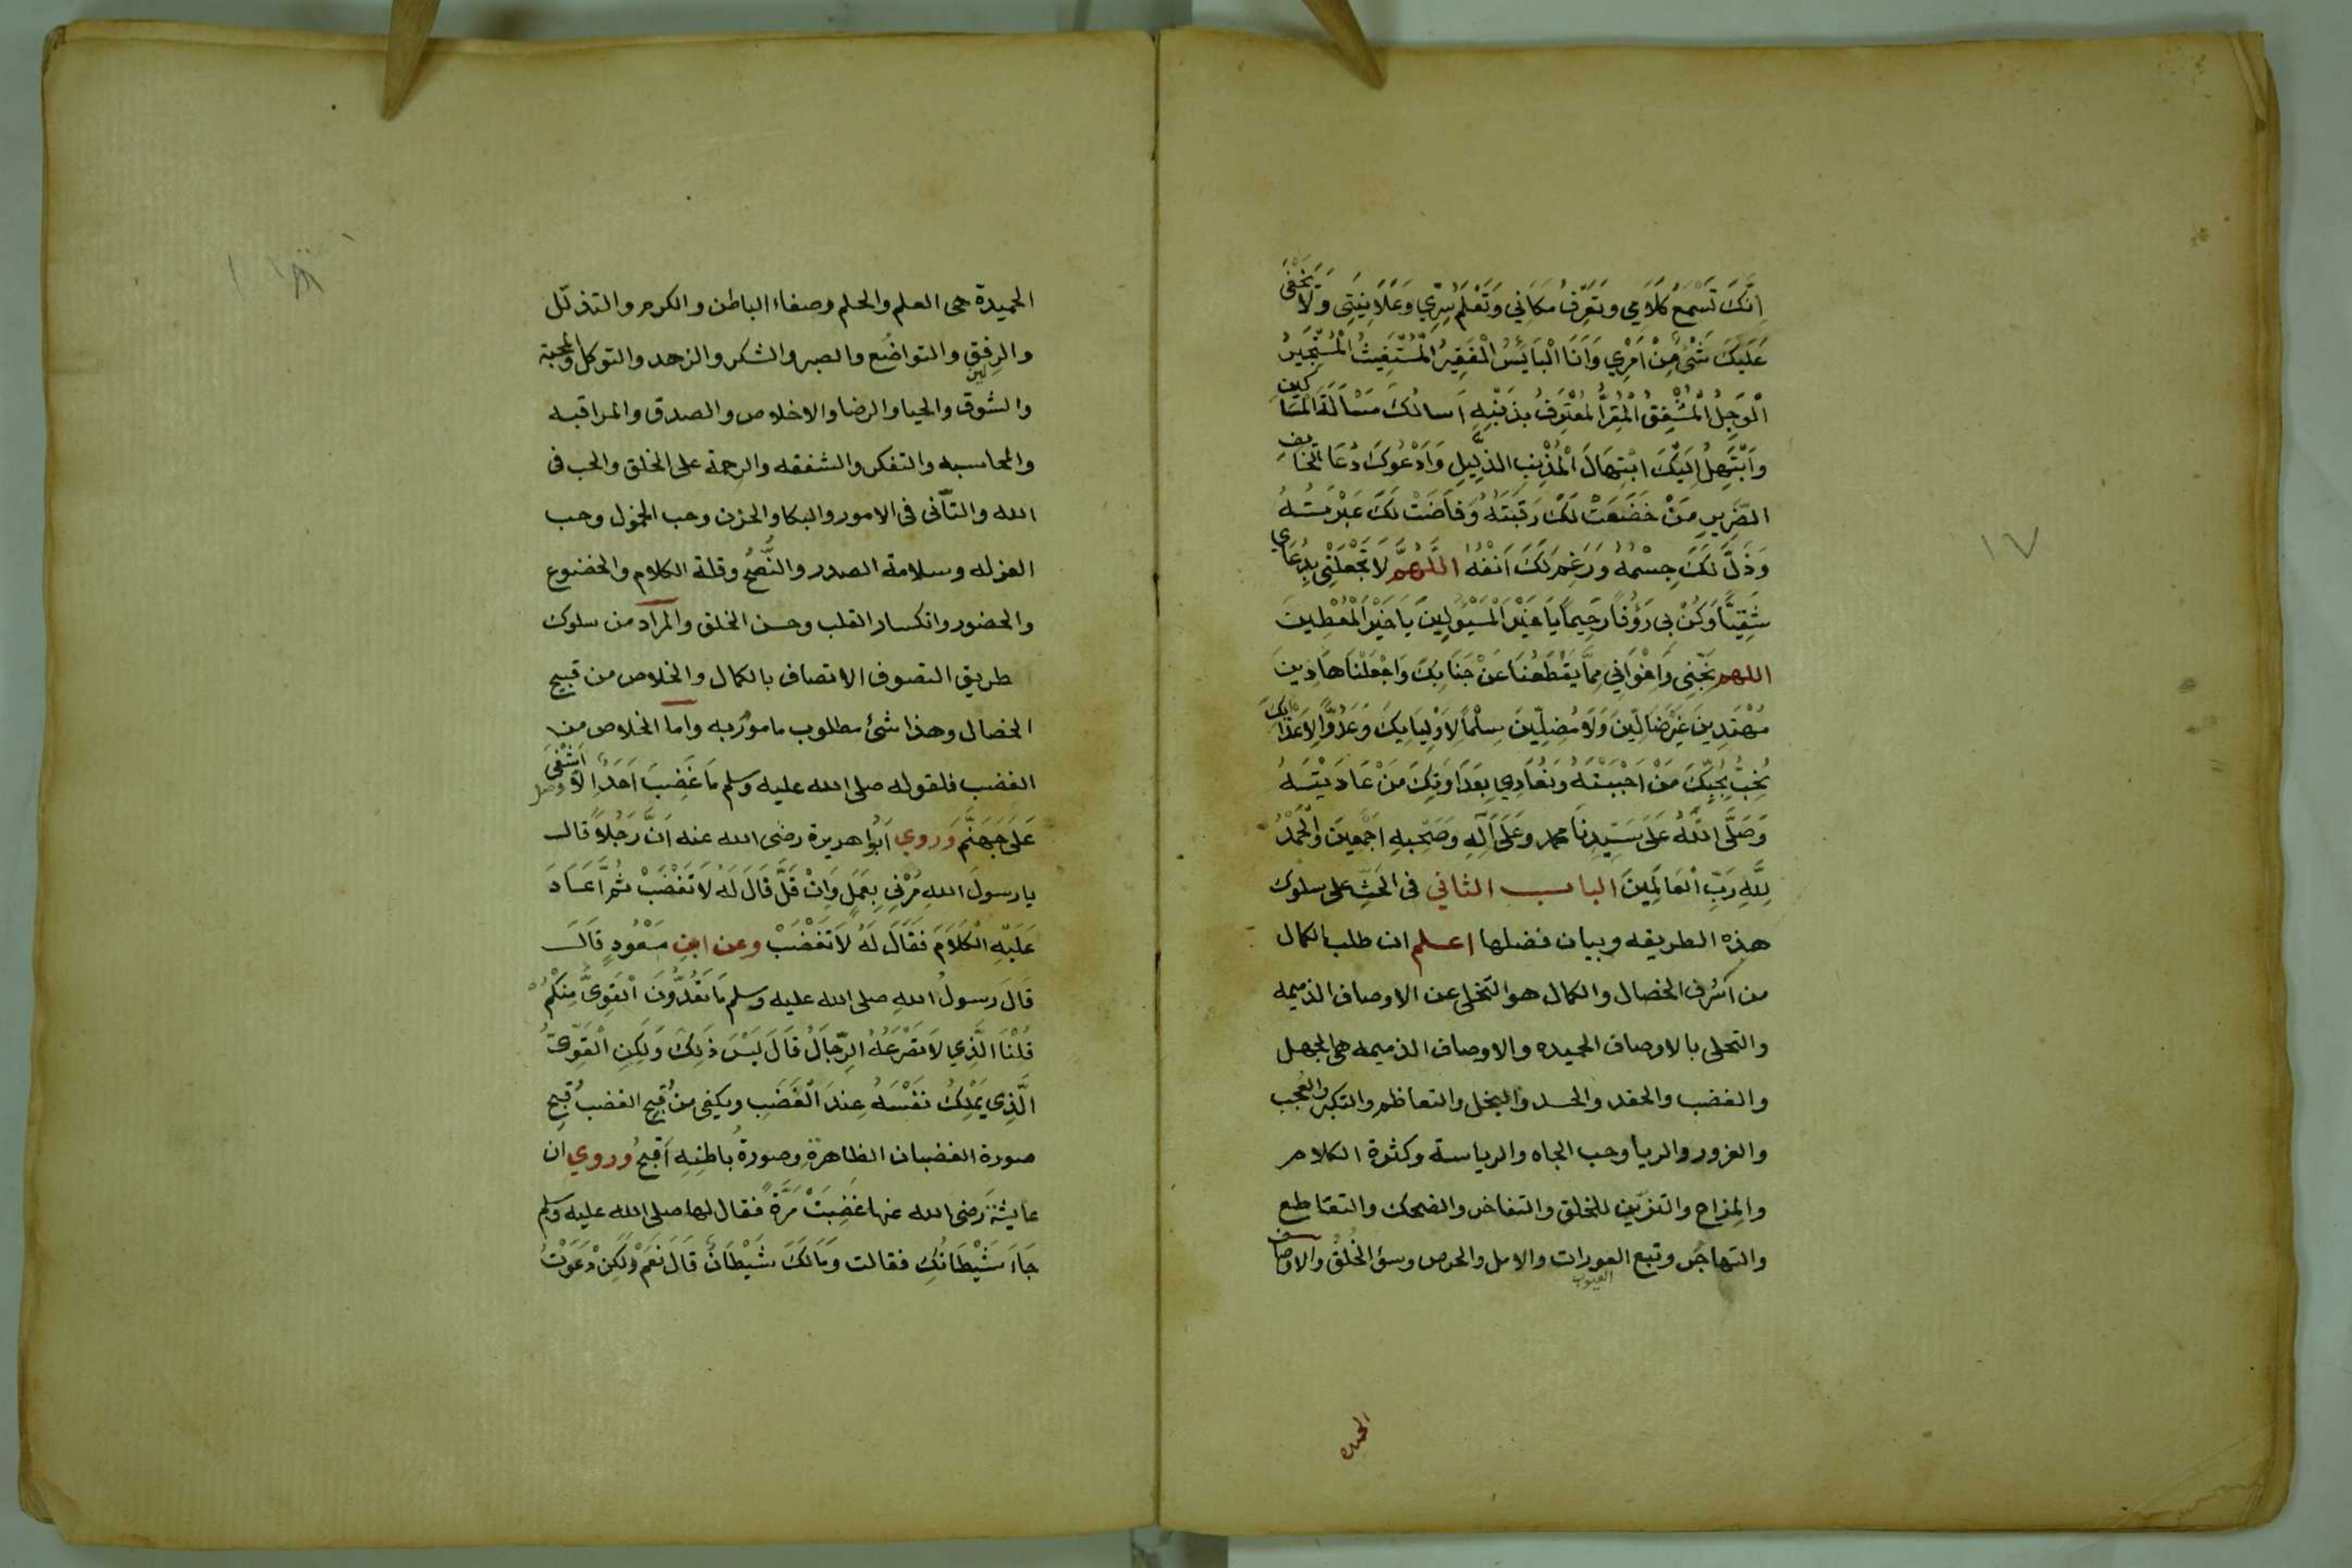 ١٧
اِنَّكَ تَسْمَعُ كَلَامِي وَتَعْرِفُ مَكَانِي وَتَعْلَمُ سِرِّي وَعَلَانِيَتِي وَلَا يَخْفَى
عَلَيْكَ شَيْءٌ مِنْ اَمْرِي وَاَنَا الْبَائِسُ الْفَقِيرُ الْمُسْتَغِيثُ الْمُسْتَجِيرُ
الْوَجِلُ الْمُشْفِقُ الْمُقِرُّ الْمُعْتَرِفُ بِذَنْبِهِ اَسالُكَ مَسْاَلَةَ الْمَسَاكِينِ
وَاَبْتَهِلُ اِلَيْكَ ابْتِهَالَ الْمُذْنِبِ الذَّلِيلِ وَاَدْعُوكَ دُعَا الْخَايِفِ
الضَّرِيرِ مَنْ خَضَعَتْ لَكَ رَقَبَتُهُ وَفَاضَتْ لَكَ عَبْرَتُهُ
وَذَلَّ لَكَ جِسْمُهُ وَرَغِمَ لَكَ اَنْفُهُ اللَّهُمَّ لَا تَجْعَلْنِي بِدُعَاي
شَقِيًّا وَكُنْ بِي رَؤُفًا رَحِيمًا يَا خَيْرَ الْمَسْئُولِينَ يَا خَيْرَ الْمُعْطِينَ
اللهم نَجِّنِي وَاِخْوَانِي مِمَّا يَقْطَعُنَا عَنْ جَنَابِكَ وَاجْعَلْنَا هَادِينَ
مُهْتَدِينَ غَيْرَ ضَالِّينَ وَلَا مُضِلِّينَ سِلْمًا لِاَوْلِيَايِكَ وَعَدُوًّا لِاَعْدَائِكَ
نُحِبُّ بِحُبِّكَ مَنْ اَحْبَبْتَهُ وَنُعَادِي بِعَدَاوَتِكَ مَنْ عَادَيْتَهُ
وَصَلَّى اللَّهُ عَلَى سَيِّدِنَا محمد وَعَلَى اَلِهِ وَصَحْبِهِ اَجْمَعِينَ وَالْحَمْدُ
لِلَّهِ رَبِّ الْعَالَمِينَ الباب الثاني فى الحَثِّ على سلوك
هذه الطريقه وبيان فضلها اعلم ان طلب الكمال
من اشرف الخصال والكمال هو التخلى عن الاوصاف الذميمه
والتحلى بالاوصاف الحميده والاوصاف الذميمه هى الجهل
والغضب والحقد والحسد والبخل والتعاظم والتكبر والعجب
والغرور والريا وحب الجاه والرياسة وكثرة الكلام
والمزاح والتزين للخلق والتفاخر والضحك والتقاطع
والتهاجر وتبع العورات والامل والحرص وسؤ الخُلُق والاوصاف
العيوب
الحميده
الحميدة هى العلم والحلم وصفاء الباطن والكرم والتذلّل
والرفق والتواضُع والصبر والشكر والزهد والتوكل والمحبة
والشوق والحيا والرضا والاخلاص والصدق والمراقبه
والمحاسبه والتفكر والشفقه والرحمة على الخلق والحب فى
الله والتأنى فى الامور والبكا والحزن وحب الخمول وحب
العزله وسلامة الصدر والنُّصْح وقلة الكلام والخضوع
والحضور وانكسار القلب وحسن الخلق والمراد من سلوك
طريق التصوف الاتصاف بالكمال والخلاص من قبيح
الخصال وهذا شئ مطلوب مامور به واما الخلاص من
الغضب فلقوله صلى الله عليه وسلم مَا غَضِبَ اَحَدٌ اِلَّا اَشْفَى
عَلَى جَهَنَّم وَروي اَبُوا هريرة رضى الله عنه اَنَّ رَجُلًا قال
يا رسولَ اللهِ مُرْنِي بِعَمَلٍ وَاِنْ قَلَّ قَالَ لَهُ لَا تَغْضَبْ ثُمَّ اَعَادَ
عَلَيْهِ الْكَلَامَ فَقَالَ لَهُ لَا تَغْضَبْ وعن ابنِ مَسْعُودٍ قَالَ
قَالَ رسولُ اللهِ صلى الله عليه وسلم مَا تَعُدُّونَ الْقَوِىَّ مِنْكُمْ
قُلْنَا الَّذِي لَا تَصْرَعُهُ الرِّجَالُ قَالَ لَيْسَ ذَلِكَ وَلَكِنِ الْقَوِيُّ
الَّذِي يَمْلِكُ نَفْسَهُ عِنْدَ الْغَضَبِ ويكفى من قُبحِ الغضب قُبحِ
صورة الغضبان الظاهرةِ وصورةُ باطنِهِ اَقبحُ وروي ان
عايشةَ رَضى الله عنها غَضِبَتْ مَرَّةً فقال لها صلى الله عليه وسلم
جَاءَ شَيْطَانُكِ فقالت وَمَا لَكَ شَيْطَانٌ قَالَ نَعَمْ وَلَكِنْ دَعَوْتُ